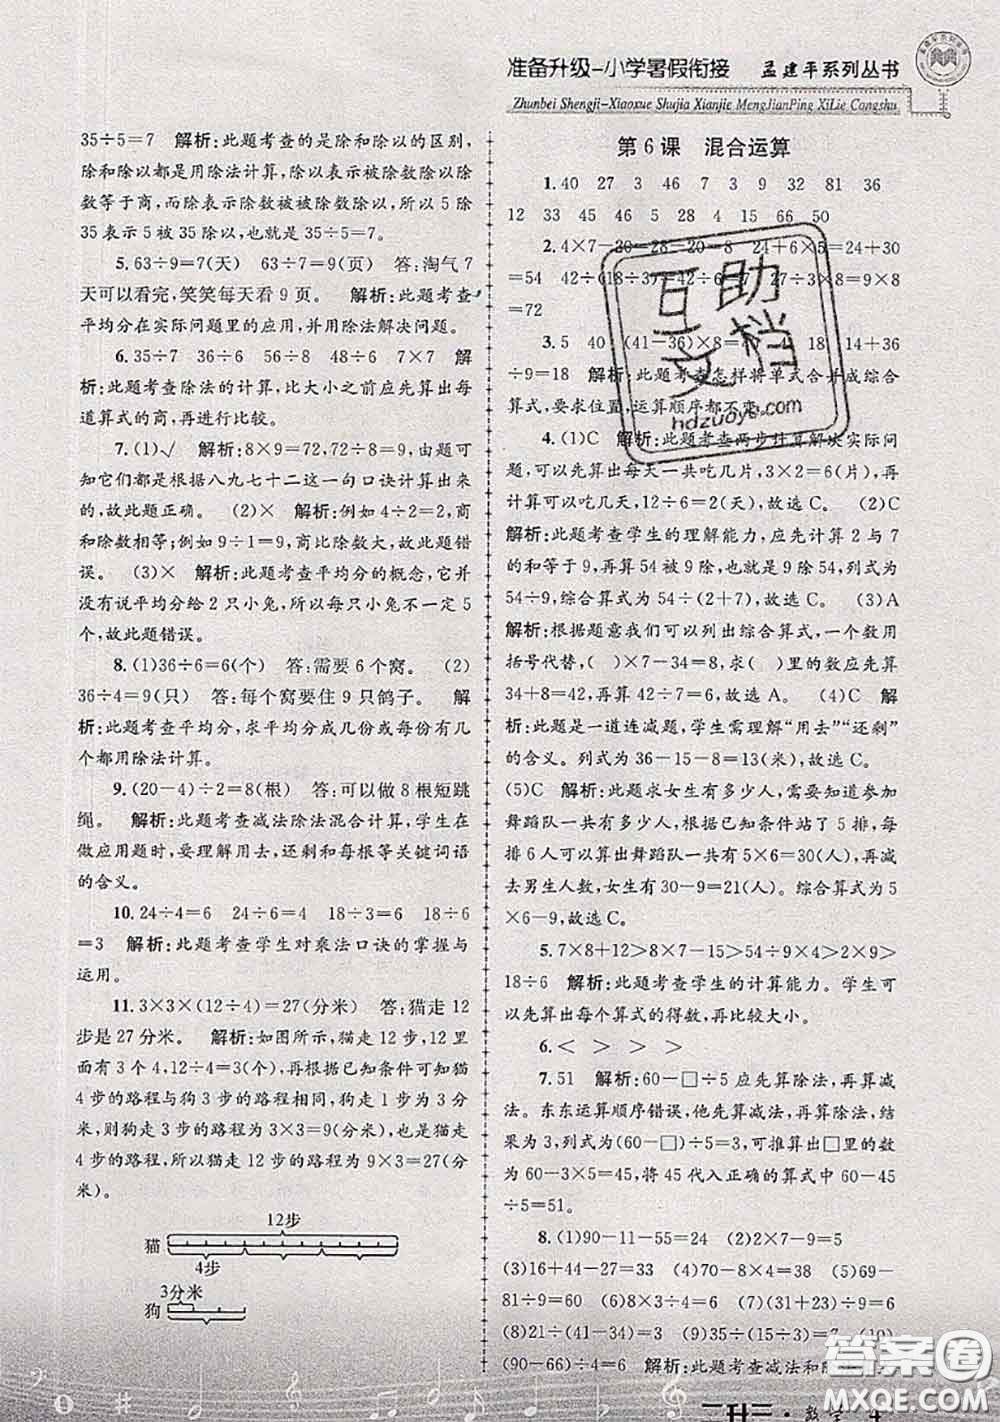 准备升级-小学暑假衔接 孟建平系列丛书
Zhunbei Shengji-Xiaoxue Shujia Xianjie MengJianPing XiLie Congshu
35÷5=7 解析:此题考查的是除和除以的区别,
除和除以都是用除法计算,除以表示被除数除以除
数等于商,而除表示除数被被除数除以,所以 5 除
35 表示 5 被 35 除以,也就是 35÷5=7。
5.63÷9=7(天) 63÷7=9(页) 答:淘气 7
天可以看完,笑笑每天看 9 页。 解析:此题考查
平均分在实际问题里的应用,并用除法解决问题。
6.35÷7 36÷6 56÷8 48÷6 7×7 解
析:此题考查除法的计算,比大小之前应先算出每
道算式的商,再进行比较。
7.(1)√ 解析:8×9=72,72÷8=9,计
算它们都是根据八九七十二这一句口诀计算出来
的,故此题正确。 (2)× 解析:例如 4÷2=2,商
和除数相等;例如 9÷1=9,商比除数大,故此题错
误。 (3)× 解析:此题考查平均分的概念,它并
没有说平均分给 2 只小兔,所以每只小兔不一定 5
个,故此题错误。
8.(1)36÷6=6(个) 答:需要 6 个窝。 (2)
36÷4=9(只) 答:每个窝要住 9 只鸽子。 解
析:此题考查平均分,求平均分成几份或每份有几
个,都用除法计算。
9.(20-4)÷2=8(根) 答:可以做 8 根短跳
绳。 解析:此题考查减法除法混合计算,学生在
做应用题时,要理解用去,还剩和每根等关键词语
的含义。
10.24÷4=6 24÷6=4 18÷3=6 18÷6
=3 解析:此题考查学生对乘法口诀的掌握与
运用。
11.3×3×(12÷4)=27(分米) 答:猫走 12
步是 27 分米。 解析:如图所示,猫走 12 步,12 里
面有 3 个 4,12÷4=3(个),再根据已知条件可知猫
4 步的路程与狗 3 步的路程相同,狗走 1 步 3 分米,
则狗走 3 步的路程为 3×3=9(分米),也就是猫走
4 步的路程,所以猫走 12 步的路程为 9×3=27(分
米)。
12步
猫
4步
3分米
狗
第 6 课 混合运算
1.40 27 3 46 7 3 9 32 81 36
12 33 45 5 28 4 15 66 50
2.4×7-20=28-20=8 24+6×5=24+30
=54
=72
3.5 40 (41-36)×8= 4 18 14+36
÷9=18 解析:此题考查怎样将单式合并成综合
算式,要求位置,运算顺序都不变。
4.(1)C 解析:此题考查两步计算解决实际问
题,可以先算出每天一共吃几片,3×2=6(片),再
计算可以吃几天,12÷6=2(天),故选 C。 (2)C
解析:此题考查学生的理解能力,应先算出 2 与 7
的和等于 9,再算 54 被 9 除,也可以是 54÷9,列式为
54÷9,综合算式为 54÷(2+7),故选 C。 (3)A
解析:根据题意我们可以列出综合算式,一个数用
括号代替,( )÷7-34=8,求( )里的数应先算
34+8=42,再算 42÷7=6,故选 A。 (4)C 解
析:此题是一道连减题,学生需理解“用去”“还剩”
的含义。列式为 36-15-8=13(米),故选 C。
(5)C 解析:此题求女生有多少人,需知道参加
舞蹈队一共有多少人,根据已知条件站成了 5 排,每
排 6 人可以算出舞蹈队一共有 5×6=30(人),再减
去男生人数,女生有 30-9=21(人)。综合算式为 5
×6-9,故选 C。
5.7×8+12>8×7-15>54÷9×4>2×9>
18÷6 解析:此题考查学生的计算能力。学生可
以先算出每个算式的得数,再比较大小。
6.< > > > >
7.51 解析:60-□÷5 应先算除法,再算减
法。东东运算顺序错误,他先算减法,再算除法,结
果为 3,列式为(60-□)÷5=3,可推算出□里的数
为 60-3×5=45,将 45 代入正确的算式中 60-45
÷5=51。
8.(1)90-11-55=24 (2)7×2-9=5
(3)16+44-27=33 (4)70-8×4=38 (5)69-
81÷9=60
(8)21÷(45-41... 
(90-66)÷4=6 解析:此题考查减法和除
互助文档
hdzuoye.com
答案圈
MXQE.COM
二升三·数学